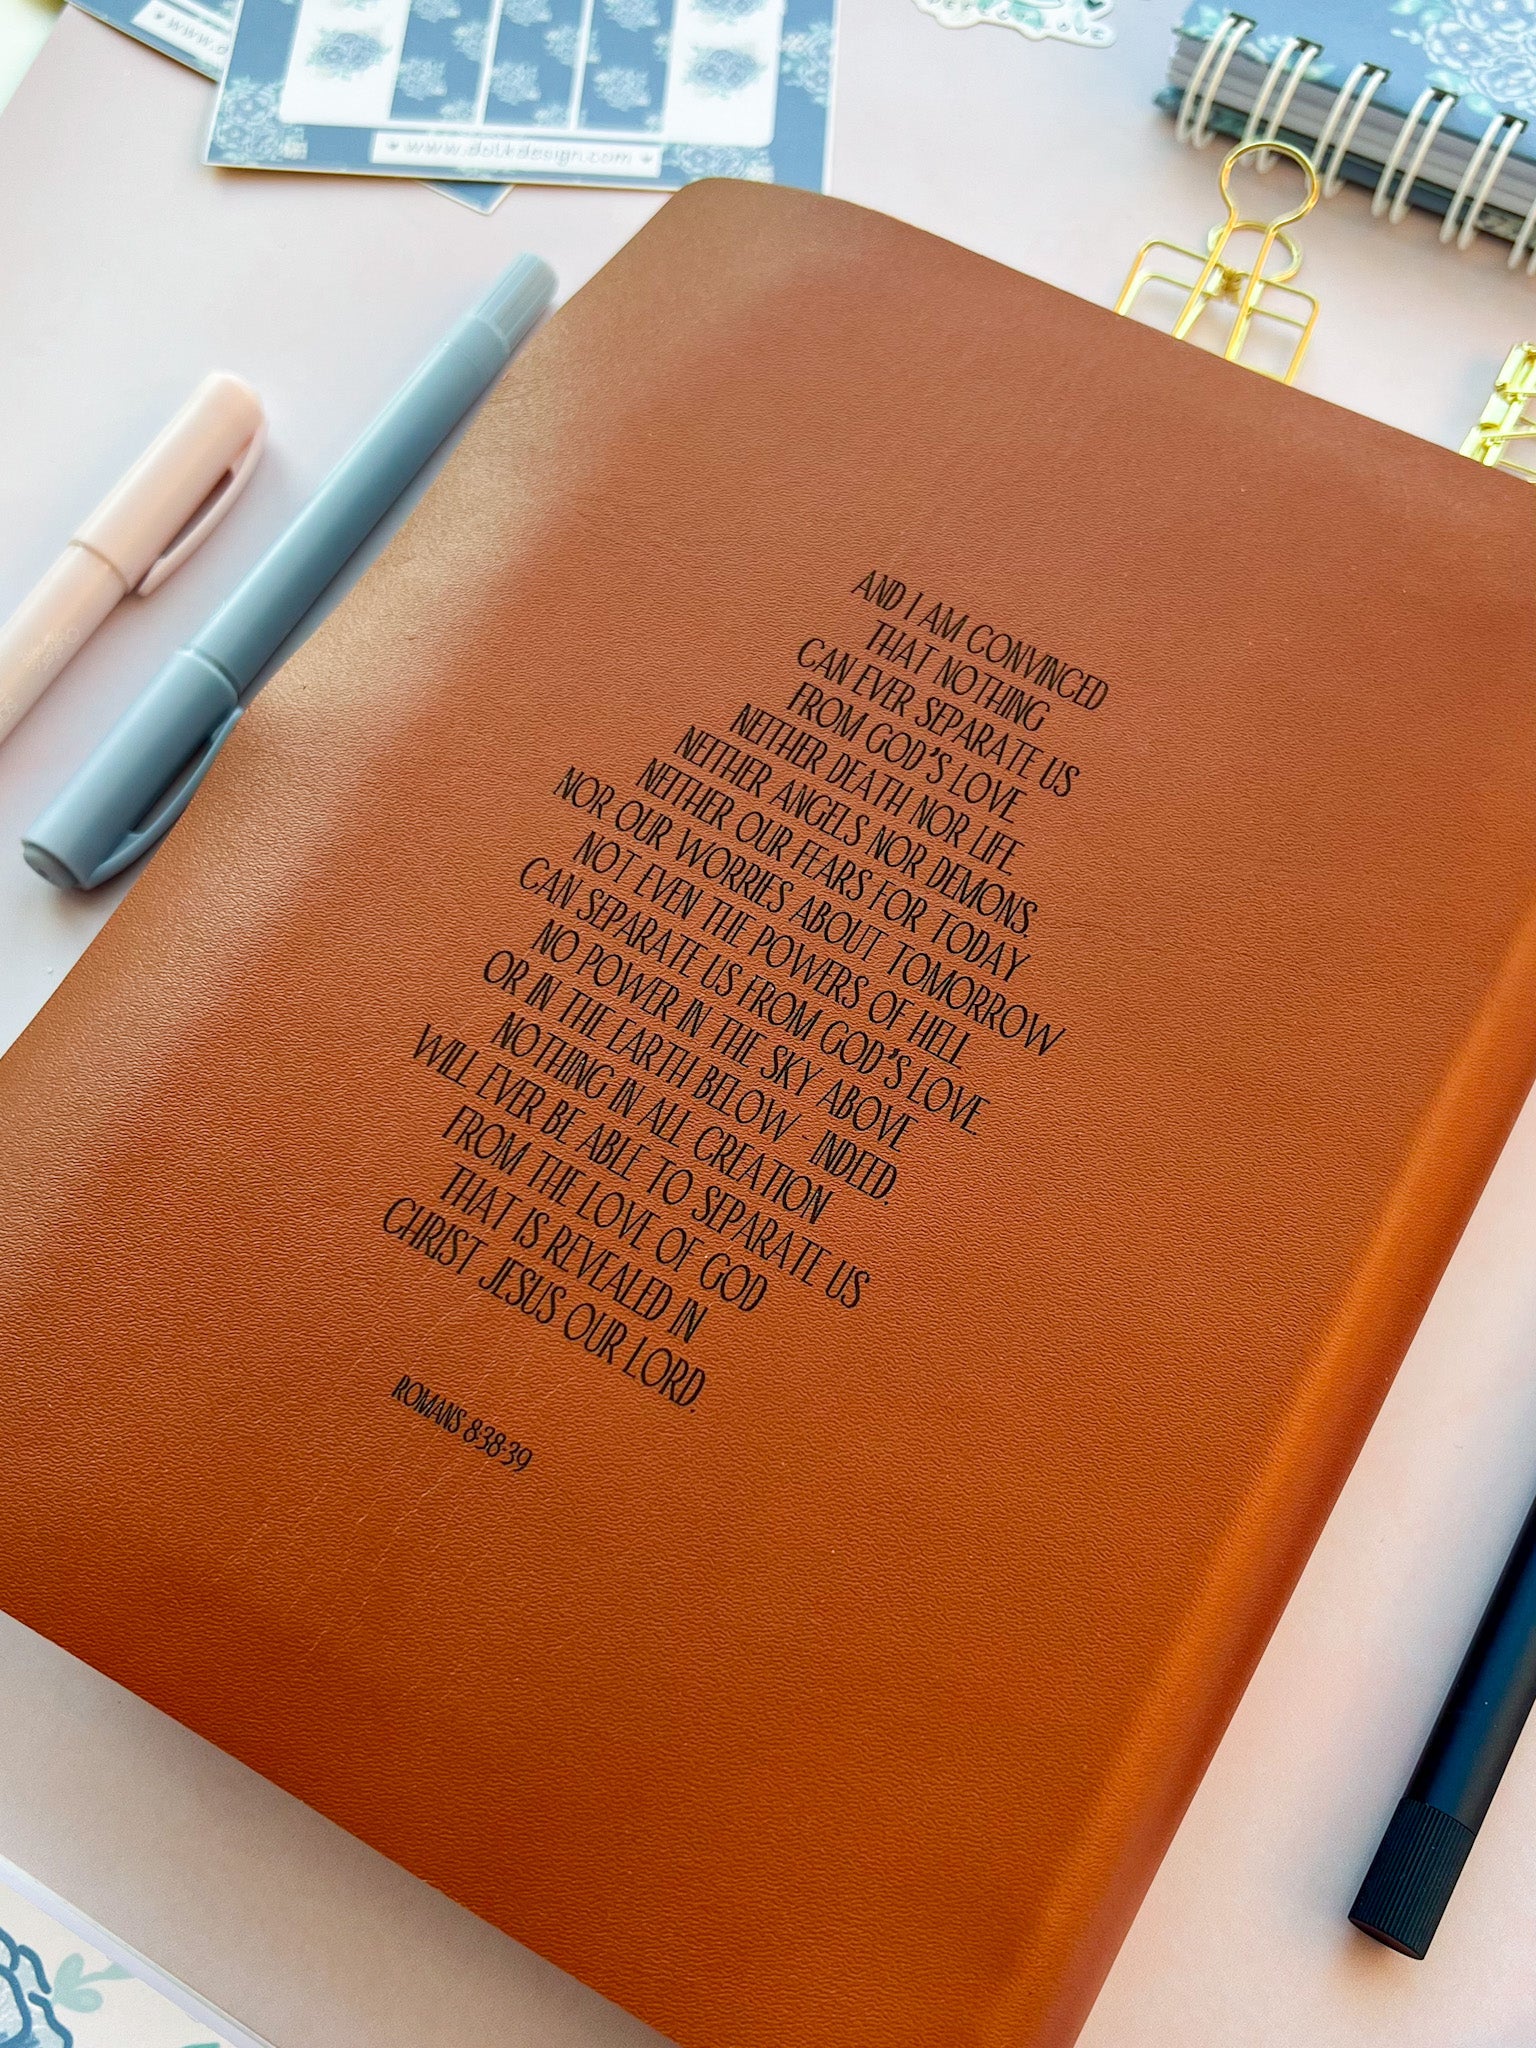 www.dotkdesign.com
AND I AM CONVINCED
THAT NOTHING
CAN EVER SEPARATE US
FROM GOD'S LOVE
NEITHER DEATH NOR LIFE
NEITHER ANGELS NOR DEMONS,
NEITHER OUR FEARS FOR TODAY
NOR OUR WORRIES ABOUT TOMORROW
NOT EVEN THE POWERS OF HELL
CAN SEPARATE US FROM GOD'S LOVE
NO POWER IN THE SKY ABOVE
OR IN THE EARTH BELOW - INDEED,
NOTHING IN ALL CREATION
WILL EVER BE ABLE TO SEPARATE US
FROM THE LOVE OF GOD
THAT IS REVEALED IN
CHRIST JESUS OUR LORD.
ROMANS 8:38-39